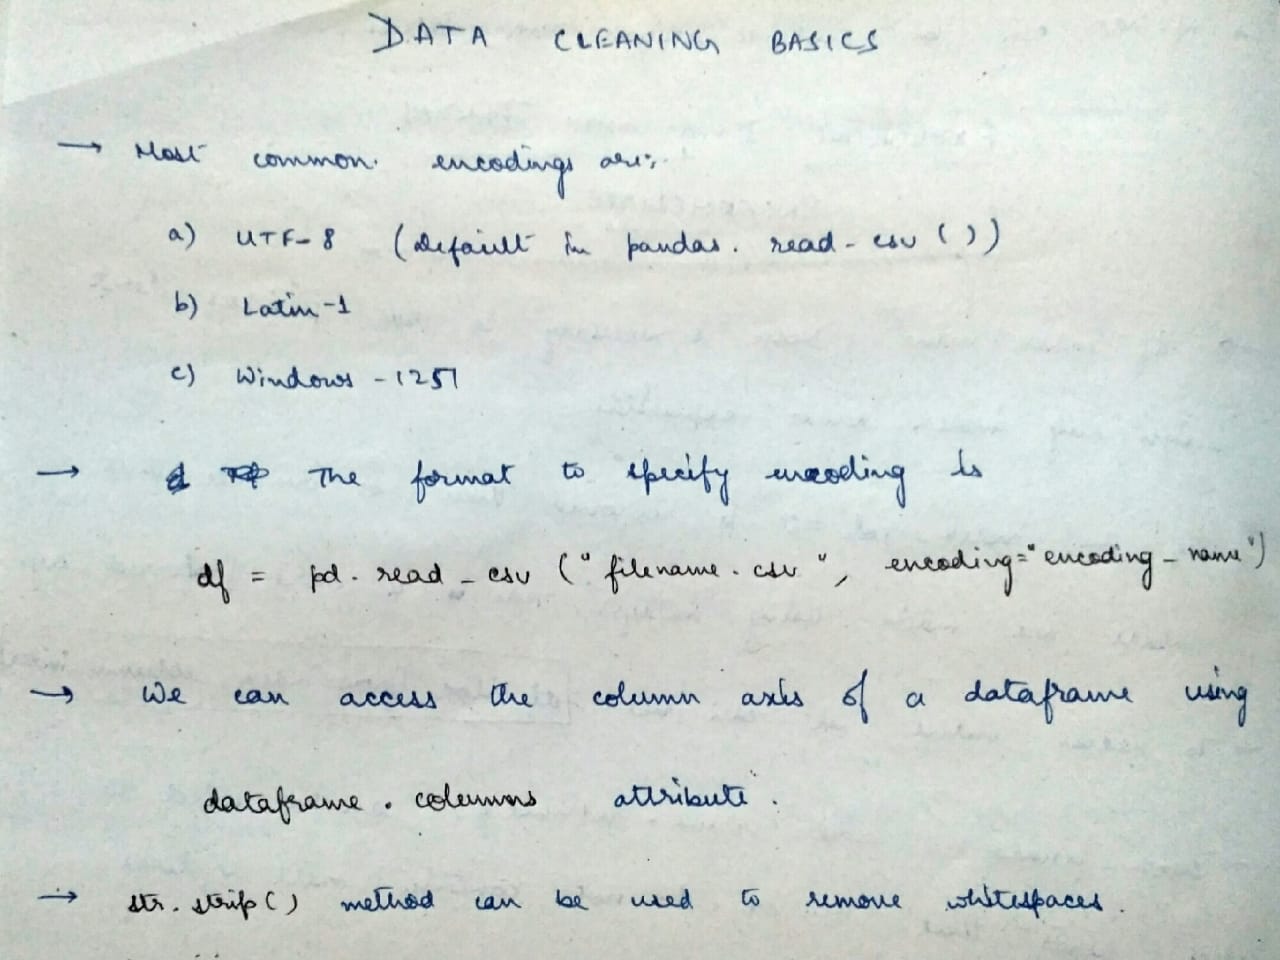 DATA CLEANING BASICS
→ Most common encodings are:
a) UTF-8 (Default in pandas.read_csv())
b) Latin-1
c) Windows-1251
→ The format to specify encoding is
df = pd.read_csv("filename.csv", encoding="encoding_name")
→ We can access the column axis of a dataframe using
dataframe.columns attribute.
→ str.strip() method can be used to remove whitespaces.